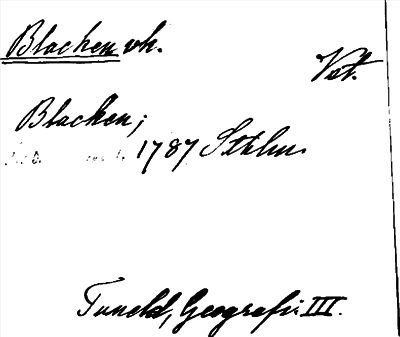 Blacken vh.
Vst.
Blacken;
1787 Sthlm
Tuneld, Geografi III.